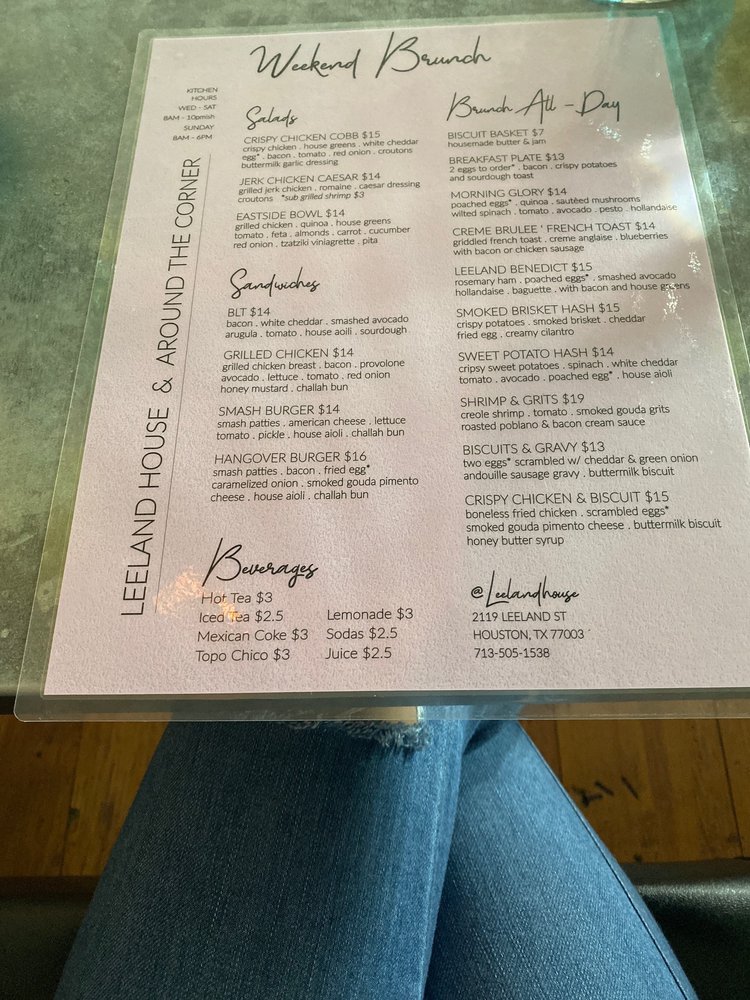 Weekend Brunch
KITCHEN
HOURS
WED - SAT
8AM - 10pmish
SUNDAY
8AM - 6PM
LEELAND HOUSE & AROUND THE CORNER
Salads
CRISPY CHICKEN COBB $15
crispy chicken . house greens . white cheddar
egg* . bacon . tomato . red onion . croutons
buttermilk garlic dressing
JERK CHICKEN CAESAR $14
grilled jerk chicken . romaine . caesar dressing
croutons *sub grilled shrimp $3
EASTSIDE BOWL $14
grilled chicken . quinoa . house greens
tomato . feta . almonds . carrot . cucumber
red onion . tzatziki viniagrette . pita
Sandwiches
BLT $14
bacon . white cheddar . smashed avocado
arugula . tomato . house aoili . sourdough
GRILLED CHICKEN $14
grilled chicken breast . bacon . provolone
avocado . lettuce . tomato . red onion
honey mustard . challah bun
SMASH BURGER $14
smash patties . american cheese . lettuce
tomato . pickle . house aioli . challah bun
HANGOVER BURGER $16
smash patties . bacon . fried egg*
caramelized onion . smoked gouda pimento
cheese . house aioli . challah bun
Beverages
Hot Tea $3
Iced Tea $2.5
Mexican Coke $3
Topo Chico $3
Lemonade $3
Sodas $2.5
Juice $2.5
Brunch All - Day
BISCUIT BASKET $7
housemade butter & jam
BREAKFAST PLATE $13
2 eggs to order* . bacon . crispy potatoes
and sourdough toast
MORNING GLORY $14
poached eggs* . quinoa . sautèed mushrooms
wilted spinach . tomato . avocado . pesto . hollandaise
CREME BRULEE ' FRENCH TOAST $14
griddled french toast . creme anglaise . blueberries
with bacon or chicken sausage
LEELAND BENEDICT $15
rosemary ham . poached eggs* . smashed avocado
hollandaise . baguette . with bacon and house greens
SMOKED BRISKET HASH $15
crispy potatoes . smoked brisket . cheddar
fried egg . creamy cilantro
SWEET POTATO HASH $14
cripsy sweet potatoes . spinach . white cheddar
tomato . avocado . poached egg* . house aioli
SHRIMP & GRITS $19
creole shrimp . tomato . smoked gouda grits
roasted poblano & bacon cream sauce
BISCUITS & GRAVY $13
two eggs* scrambled w/ cheddar & green onion
andouille sausage gravy . buttermilk biscuit
CRISPY CHICKEN & BISCUIT $15
boneless fried chicken . scrambled eggs*
smoked gouda pimento cheese . buttermilk biscuit
honey butter syrup
@Leelandhouse
2119 LEELAND ST
HOUSTON, TX 77003
713-505-1538